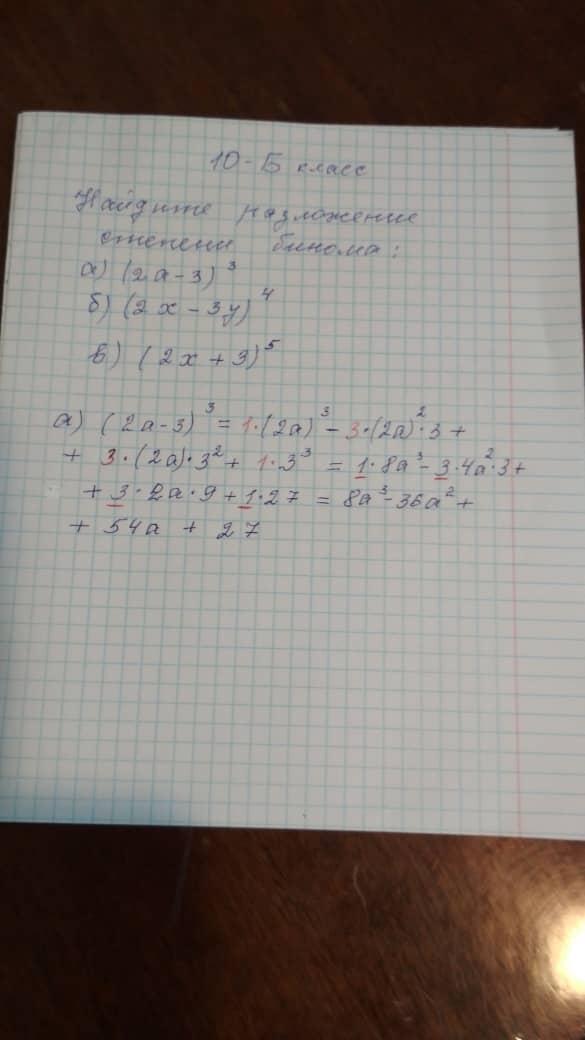 10-Б класс
Найдите разложение
степени бинома:
а) (2a-3)³
б) (2x-3y)⁴
в) (2x+3)⁵
а) (2a-3)³ = 1·(2a)³-3·(2a)²·3+
+ 3·(2a)·3²+ 1·3³ = 1·8a³-3·4a²·3+
+ 3·2a·9+1·27 = 8a³-36a²+
+ 54a + 27